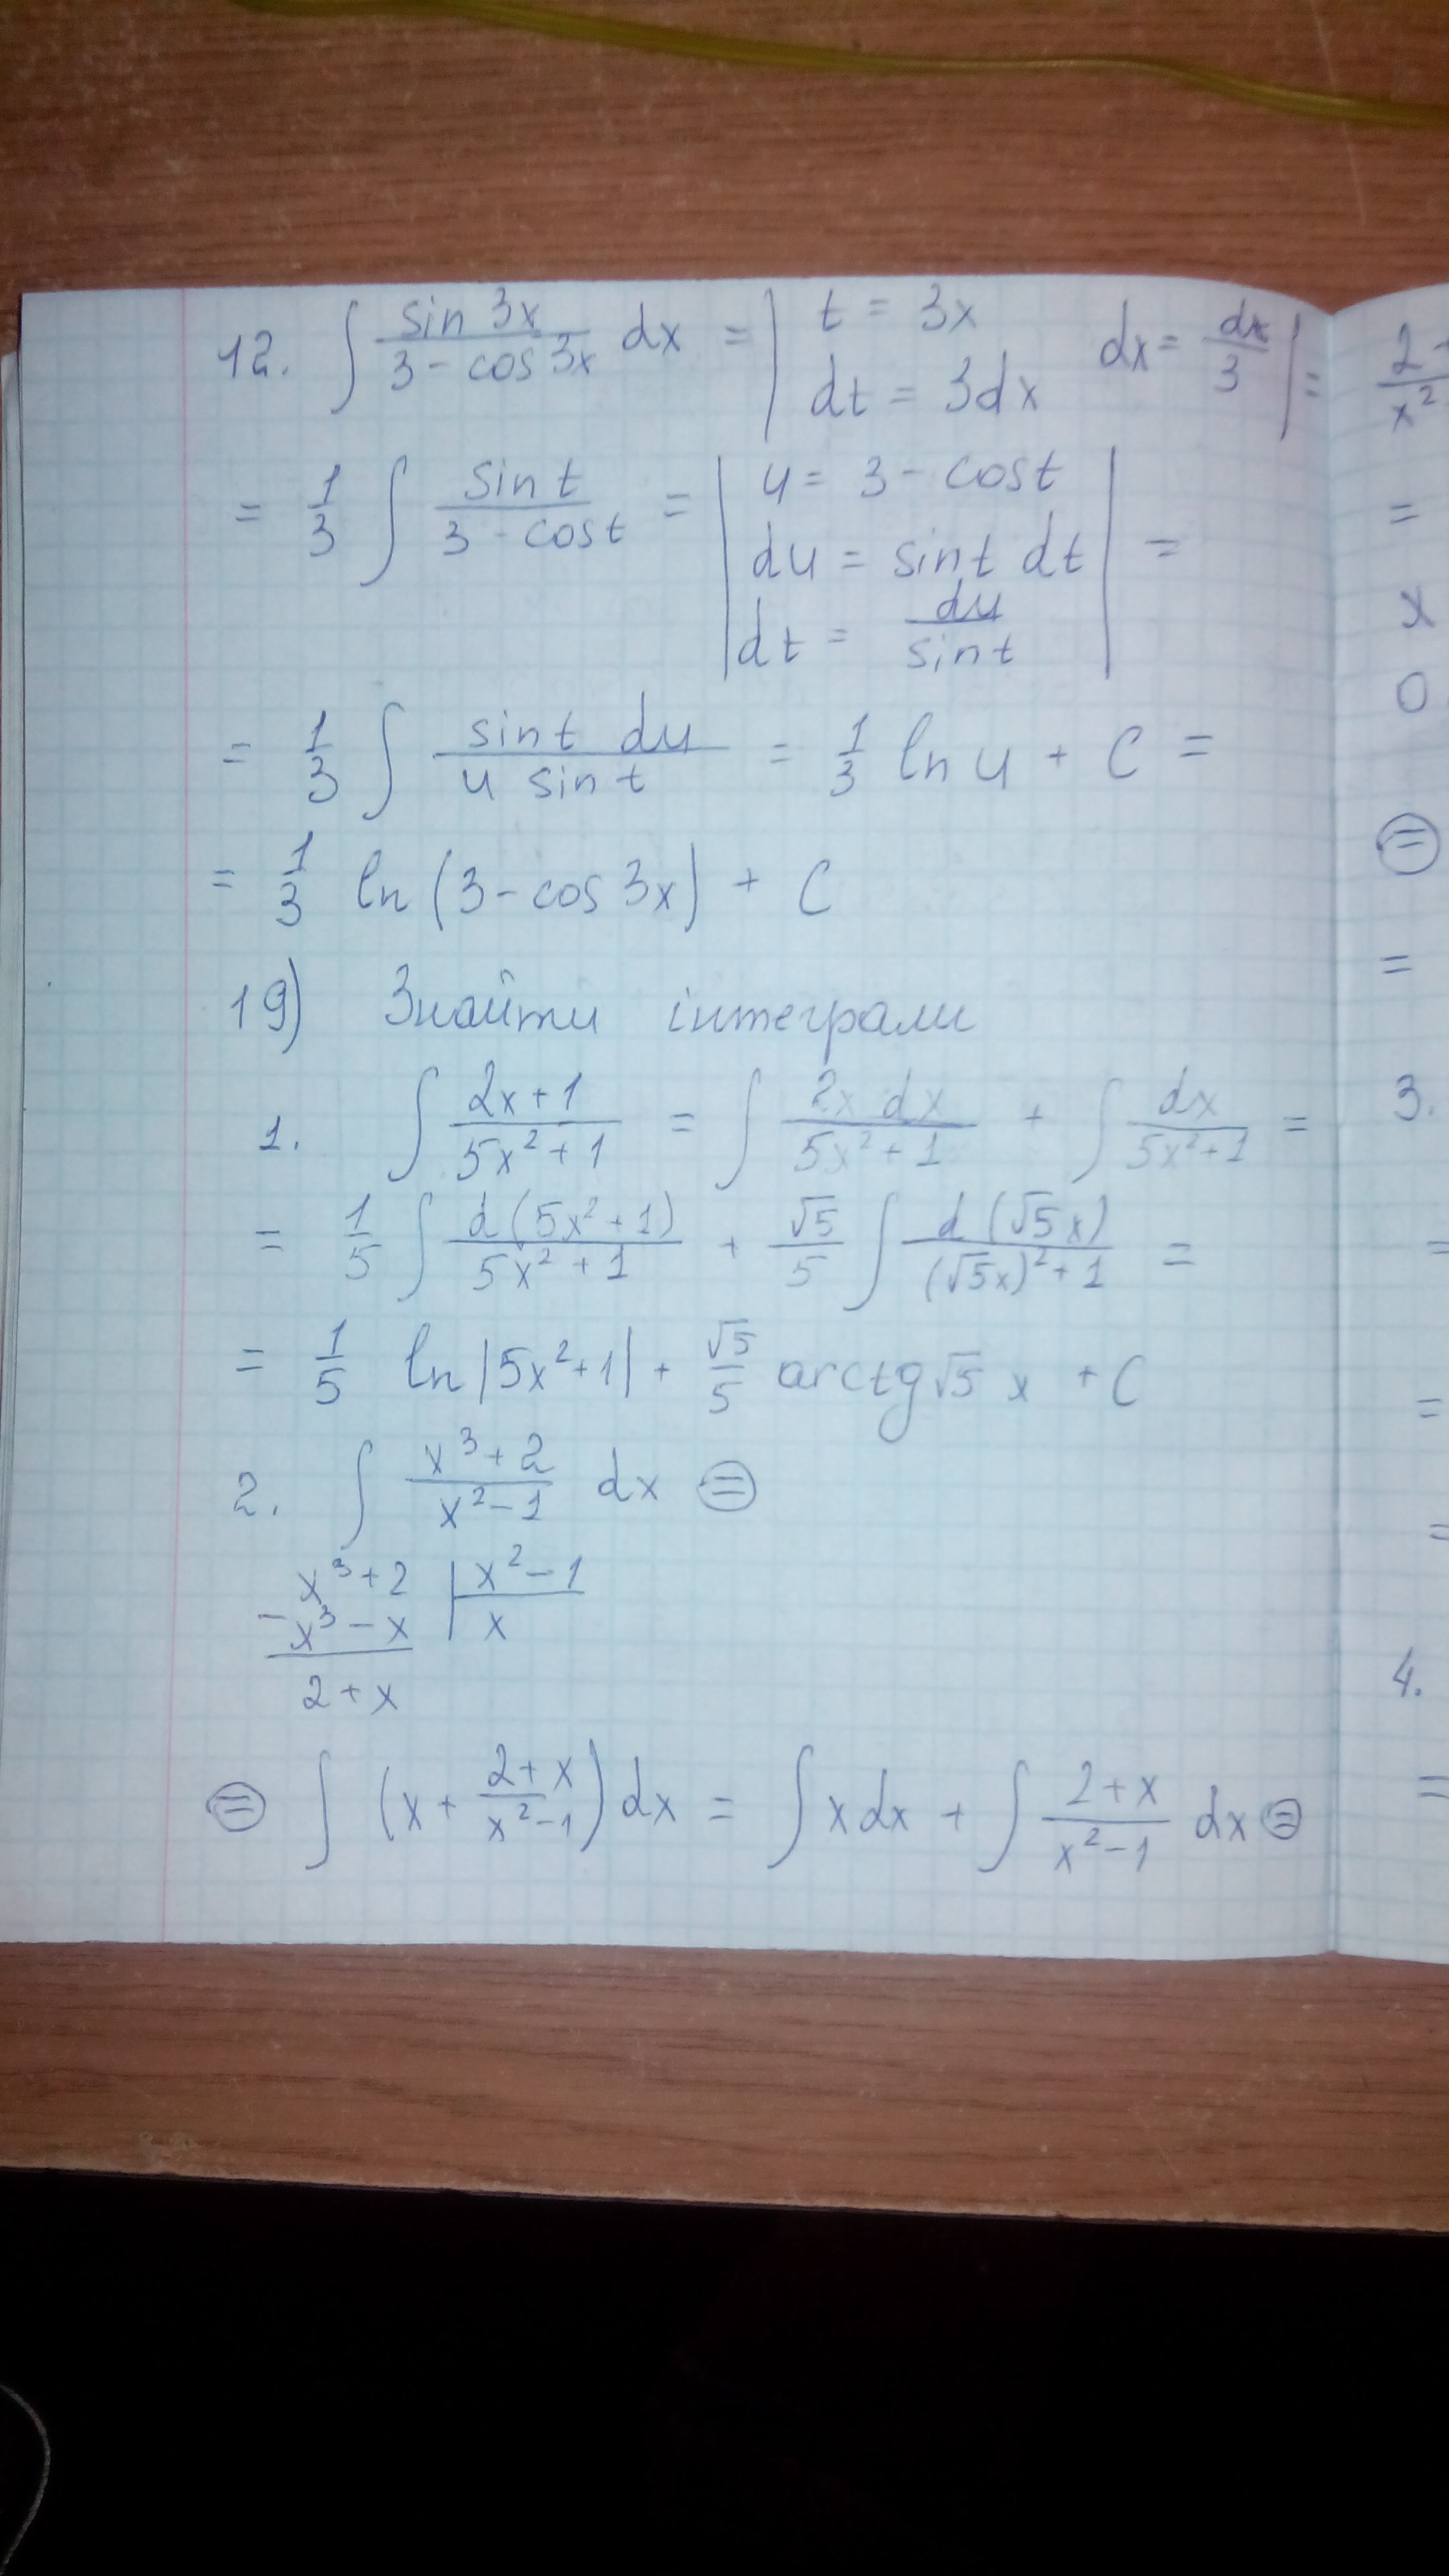 12. ∫ sin 3x / 3 - cos 3x dx = | t = 3x dt = 3dx dx = dx/3 | =
= 1/3 ∫ sin t / 3 - cos t = | u = 3 - cos t du = sin t dt dt = du / sin t | =
= 1/3 ∫ sin t du / u sin t = 1/3 ln u + C =
= 1/3 ln (3 - cos 3x) + C
19) Знайти інтеграли
1. ∫ 2x + 1 / 5x² + 1 = ∫ 2x dx / 5x² + 1 + ∫ dx / 5x² + 1 =
= 1/5 ∫ d (5x² + 1) / 5x² + 1 + √5/5 ∫ d (√5 x) / (√5x)² + 1 =
= 1/5 ln |5x² + 1| + √5/5 arctg √5 x + C
2. ∫ x³ + 2 / x² - 1 dx ⊜
x³ + 2 | x² - 1
- x³ - x | x
2 + x
⊜ ∫ (x + 2 + x / x² - 1) dx = ∫ x dx + ∫ 2 + x / x² - 1 dx ⊜
x²
=
x
0
⊜
=
3.
=
=
=
4.
=